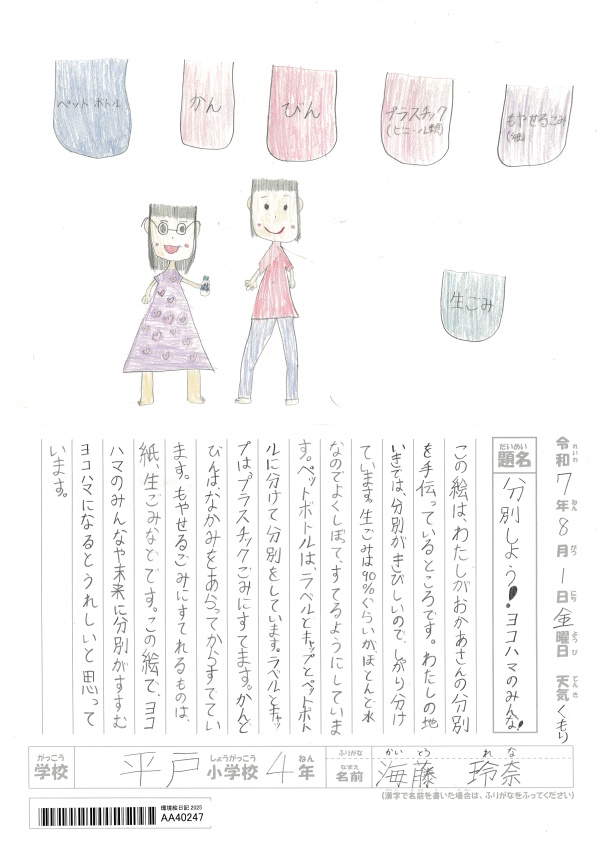 ペットボトル
かん
びん
プラスチック
(ビニール類)
もやせるごみ
(紙)
生ごみ
令和7年8月1日金曜日 天気くもり
れいわ ねん がつ にち ようび てんき
だいめい
題名
分別しよう!ヨコハマのみんな!
この絵は、わたしがおかあさんの分別
を手伝っているところです。わたしの地
いきでは、分別がきびしいので、しかり分け
ています。生ごみは90%ぐらいがほとんど水
なのでよくしぼって、すてるようにしていま
す。ペットボトルは、ラベルとキャップとペットボト
ルに分けて分別をしています。ラベルとキャッ
プは、プラスチックごみにすてます。かんと
びんは、なかみをあらってからすててい
ます。もやせるごみにすてれるものは、
紙、生ごみなどです。この絵で、ヨコ
ハマのみんなや未来に分別がすすむ
ヨコハマになるとうれしいと思って
います。
がっこう しょうがっこう ねん
学校 平戸小学校4年
ふりがな かいとう れな
なまえ
名前 海藤 玲奈
(漢字で名前を書いた場合は、ふりがなをふってください)
環境絵日記2025
AA40247